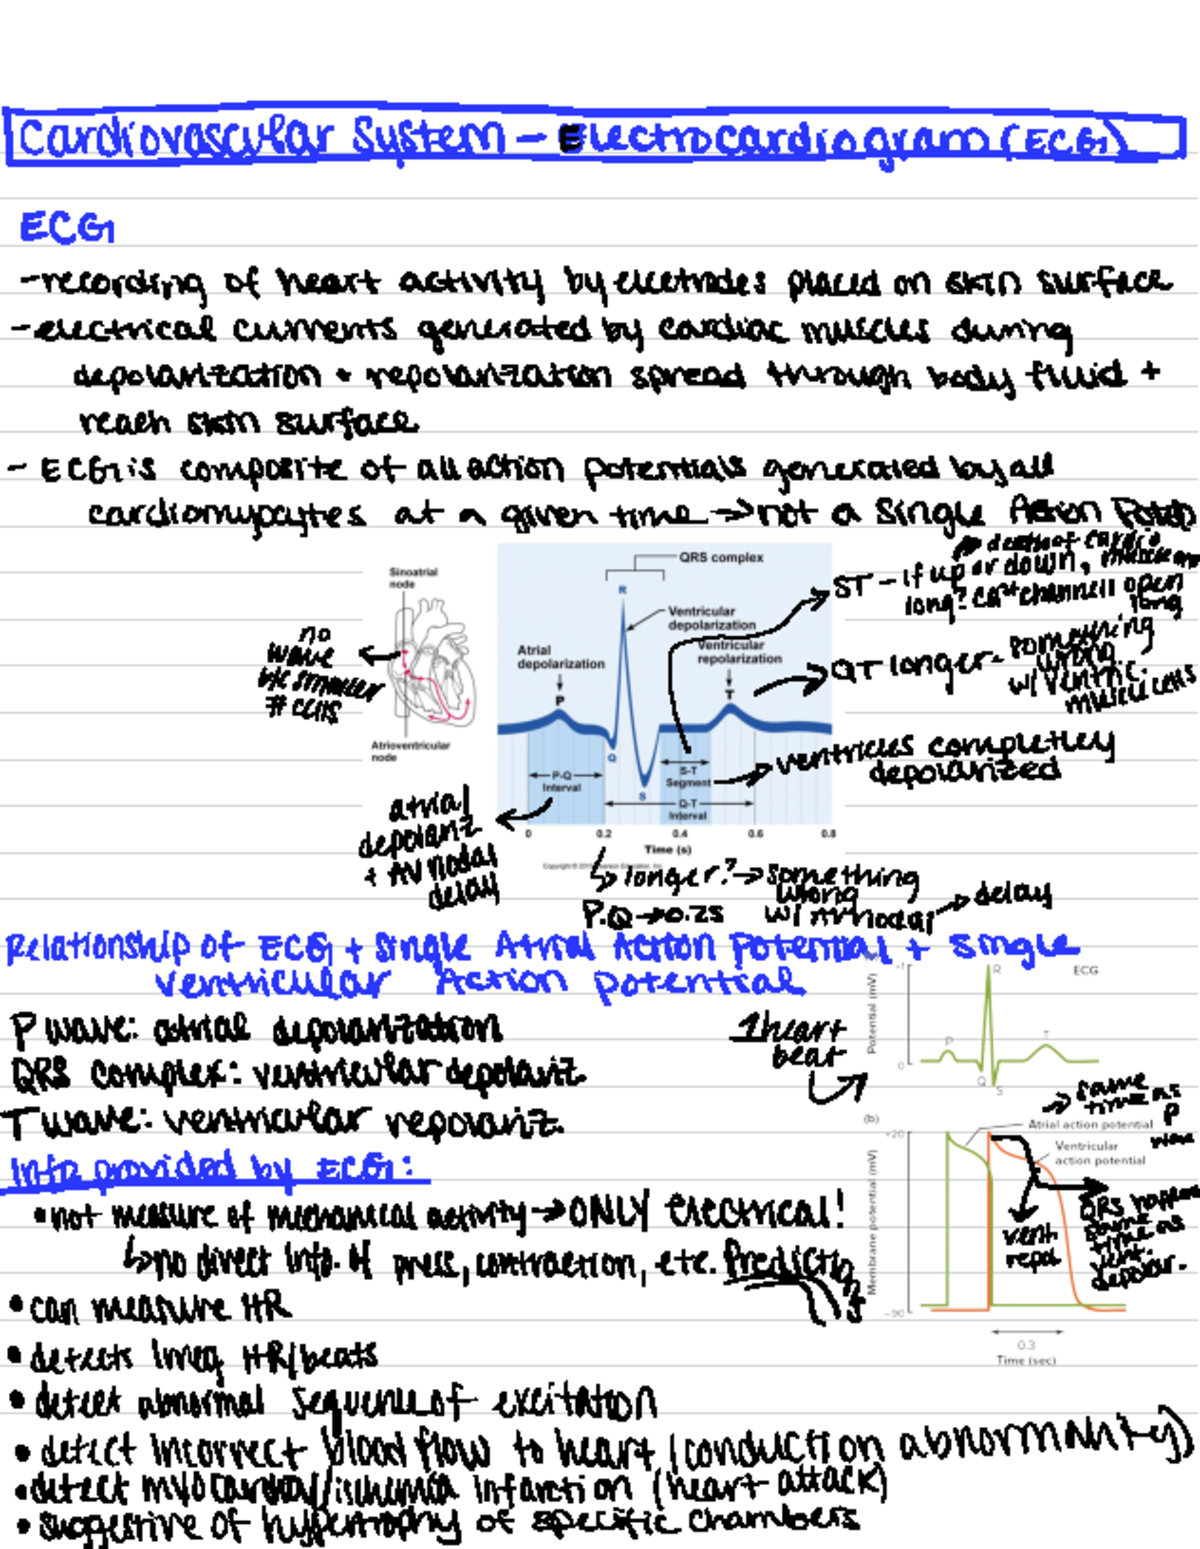 Cardiovascular System - Electrocardiogram (ECG)
ECG
-recording of heart activity by electrodes placed on skin surface
-electrical currents generated by cardiac muscles during
depolarization + repolarization spread through body fluid +
reach skin surface
- ECG is composite of all action potentials generated by all
cardiomyocytes at a given time → not a single Action
death of cardio
ST - if up or down,
long? Ca2+ channell open
long
QRS complex
R
Ventricular
depolarization
Ventricular
repolarization
Atrial
depolarization
P
T
Q
S
Sinoatrial
node
Atrioventricular
node
no
wave
b/c smaller
# cells
QT longer - something
wrong
w/ ventric.
muscle cells
ventricles completley
depolarized
P-Q
Interval
S-T
Segment
Q-T
Interval
0 0.2 0.4 0.6 0.8
Time (s)
atrial
depolariz
+ AV nodal
delay
longer? → something
wrong
P.Q → 0.2s w/
→ delay
Relationship of ECG + Single Atrial Action Potential + Single
Ventricular Action Potential
P wave: atrial depolarization
QRS complex: ventricular depolariz.
T wave: ventricular repolariz.
1 heart
beat
Potential (mV)
R
ECG
P
T
Q
S
0
same
time as
P
wave
(b)
Atrial action potential
Ventricular
action potential
+20
Membrane potential (mV)
-90
vent
repol
QRS happens
same
time as
vent.
depolar.
0.3
Time (sec)
Info provided by ECG:
•not measure of mechanical activity → ONLY electrical!
↳no direct info. of press, contraction, etc.
•can measure HR
•detects irreg HR/beats
•detect abnormal sequence of excitation
•detect incorrect blood flow to heart (conduction abnormality)
•detect infarction (heart attack)
•suggestive of hypertrophy of specific chambers